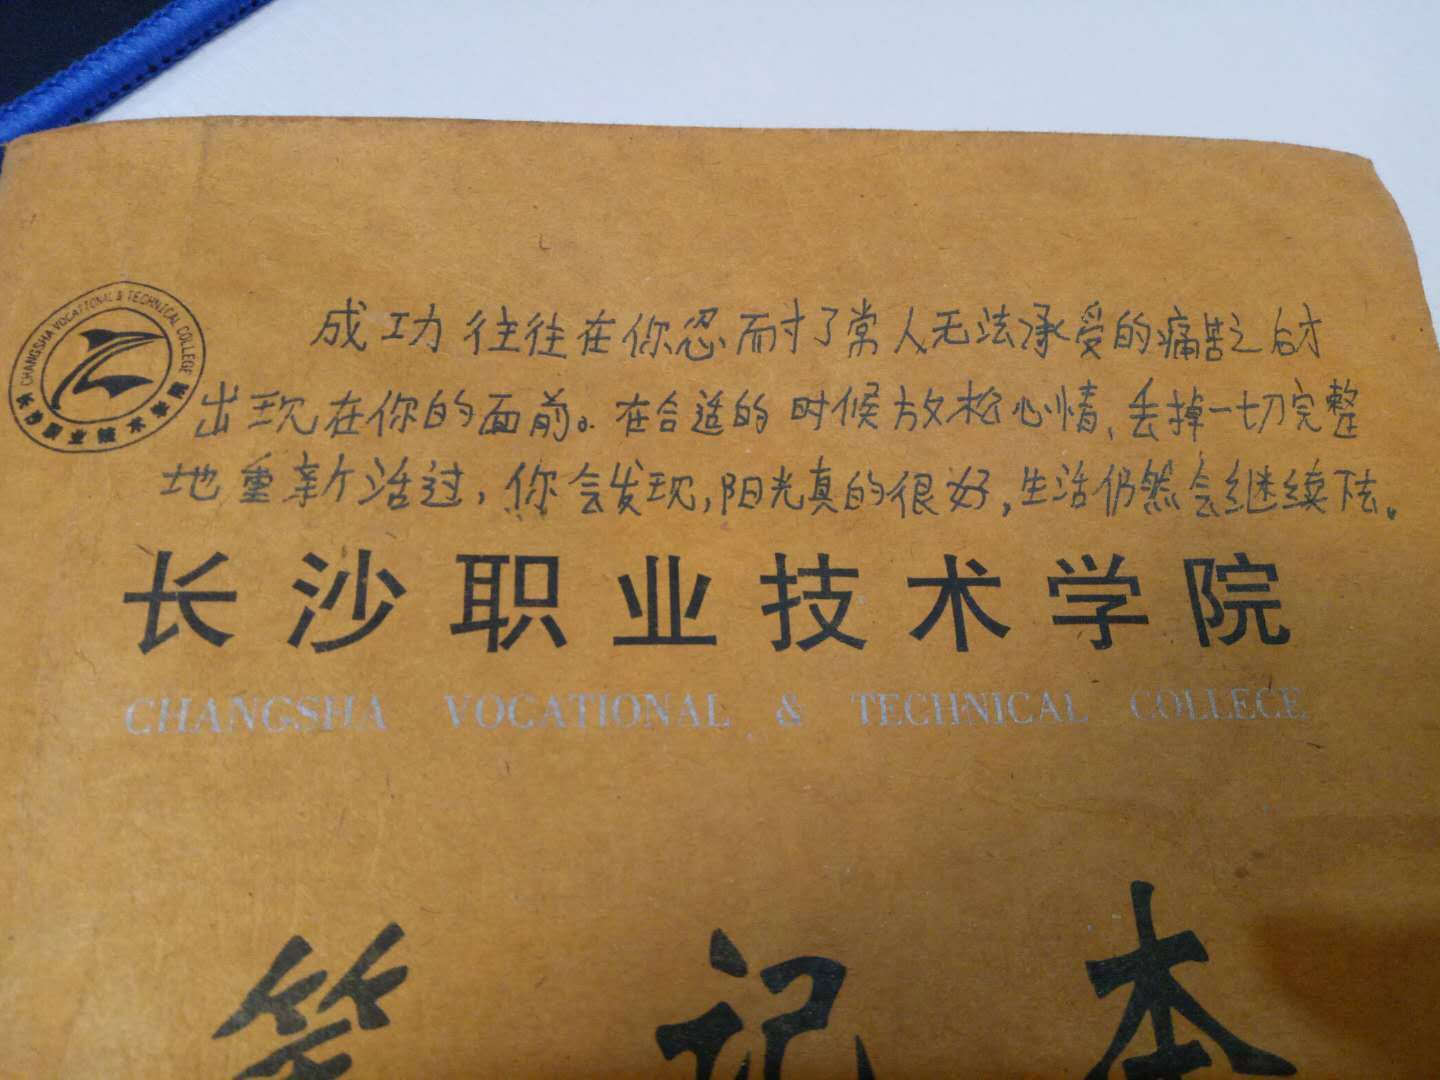 成功往往在你忍耐了常人无法承受的痛苦之后才
出现在你的面前。在合适的时候放松心情、丢掉一切完整
地重新活过,你会发现,阳光真的很好,生活仍然会继续下去。
CHANGSHA VOCATIONAL & TECHNICAL COLLEGE
长沙职业技术学院
长沙职业技术学院
CHANGSHA VOCATIONAL & TECHNICAL COLLEGE
笔记本